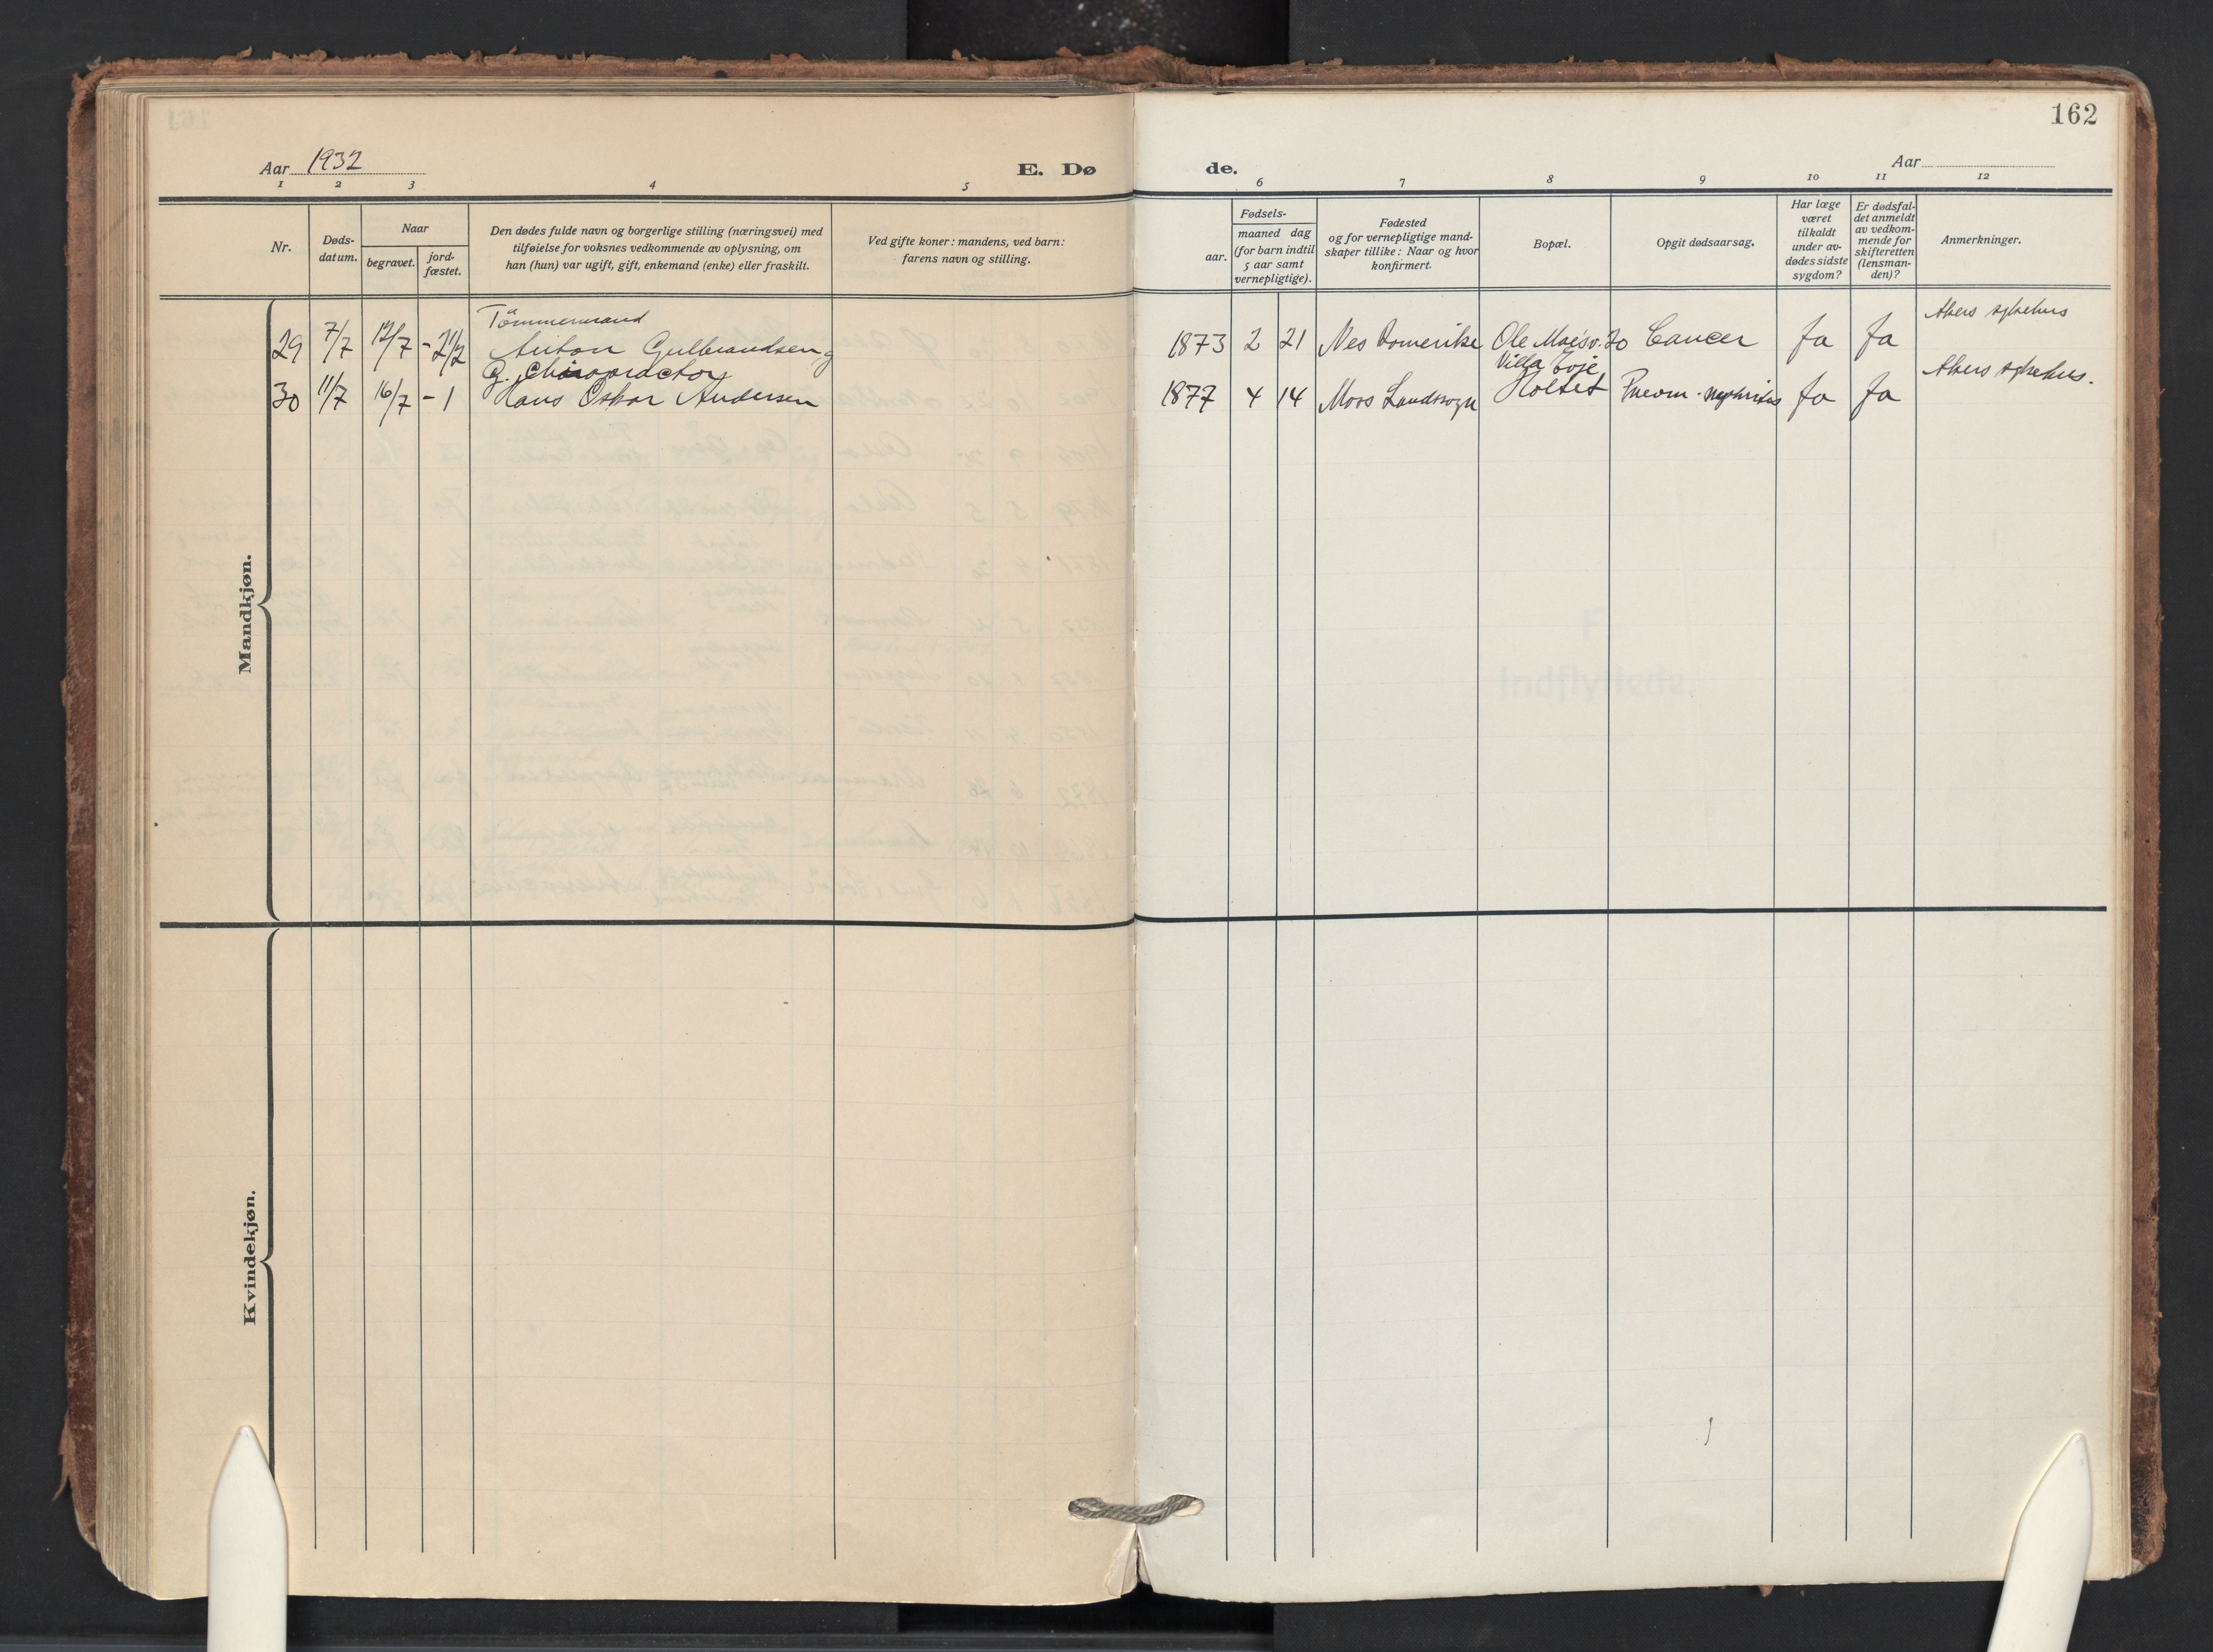 162
Aar 1932
E. Dø
de.
Aar
1 2 3 4 5 6 7 8 9 10 11 12
Nr.
Døds-
datum.
Naar
begravet.
jord-
fæstet.
Den dødes fulde navn og borgerlige stilling (næringsvei) med
tilføielse for voksnes vedkommende av oplysning, om
han (hun) var ugift, gift, enkemand (enke) eller fraskilt.
Ved gifte koner: mandens, ved barn:
farens navn og stilling.
Fødsels-
aar.
maaned dag
(for barn indtil
5 aar samt
vernepligtige).
Fødested
og for vernepligtige mand-
skaper tillike: Naar og hvor
konfirmert.
Bopæl.
Opgit dødsaarsag.
Har læge
været
tilkaldt
under av-
dødes sidste
sygdom?
Er dødsfal-
det anmeldt
av vedkom-
mende for
skifteretten
(lensman-
den)?
Anmerkninger.
Mandkjøn.
Tømmermand
Akers sykehus
29 7/7 12/7 - 2 1/2 Anton Gulbrandsen g 1873 2 21 Nes Romerike Ole Moesv. 20 Cancer Ja Ja
G. Chiropractor
Villa Eoje
Akers sykehus.
30 11/7 16/7 - 1 Hans Oskar Andersen 1877 4 14 Moss Landssogn Holtet Pneum - nephritis Ja Ja
Kvindekjøn.